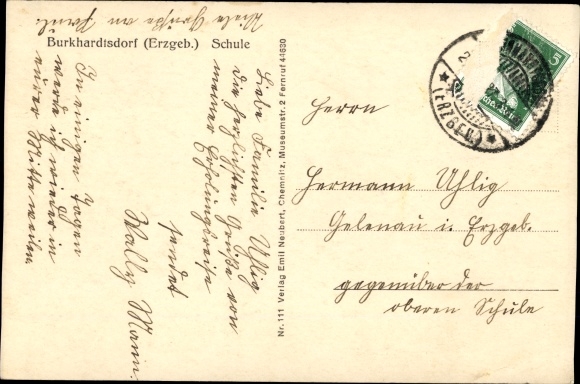 Burkhardtsdorf (Erzgeb.) Schule
Liebe Familie Uhlig
die herzlichsten Grüße von
meiner Erholungsreise
sendet
Wally Mann.
In einigen Tagen
werde ich wieder in
eurer Mitte weilen
Viele Grüße an Paul.
Nr. 111 Verlag Emil Neubert, Chemnitz, Museumstr. 2 Fernruf 44630
Herrn
Hermann Uhlig
Gelenau i. Erzgeb.
gegenüber der
oberen Schule
5
(ERZGEB.)